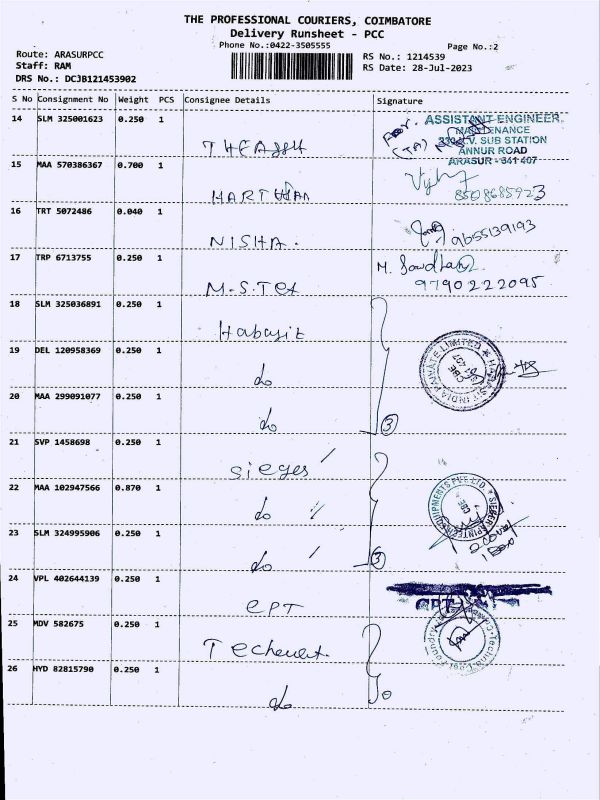 THE PROFESSIONAL COURIERS, COIMBATORE
Delivery Runsheet - PCC
Phone No.:0422-3505555
Page No.:2
Route: ARASURPCC
Staff: RAM
DRS No.: DCJB121453902
RS No.: 1214539
RS Date: 28-Jul-2023
S No Consignment No Weight PCS Consignee Details Signature
14 SLM 325001623 0.250 1
ASSISTANT ENGINEER
MAINTENANCE
SUB STATION
ANNUR ROAD
ARASUR - 641 407
15 MAA 570386367 0.700 1
8508685923
16 TRT 5072486 0.040 1 NISHA. 9655139193
17 TRP 6713755 0.250 1 M.S.Tex M.
9790222095
18 SLM 325036891 0.250 1 Habasit
19 DEL 120958369 0.250 1 do
20 MAA 299091077 0.250 1 do 3
21 SVP 1458698 0.250 1 sieges
22 MAA 102947566 0.870 1 do
23 SLM 324995906 0.250 1 do 3
24 VPL 402644139 0.250 1 CPT
25 MDV 582675 0.250 1
26 HYD 82815790 0.250 1 do